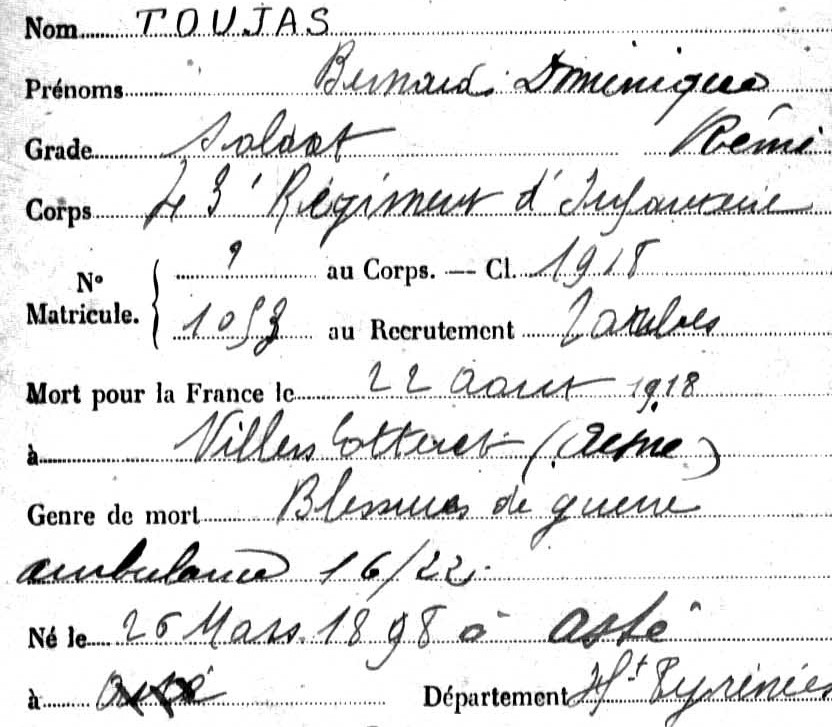 Nom TOUJAS
Prénoms Bernard Dominique
Grade Soldat Rémi
Corps 43e Régiment d'Infanterie
N° Matricule. ? au Corps. — Cl. 1918
1053 au Recrutement Tarbes
Mort pour la France le 22 aout 1918
à Villers Cotteret (Aisne)
Genre de mort Blessures de guerre
ambulance 16/22.
Né le 26 Mars 1898 à Asté
à Département Htes Pyrénées